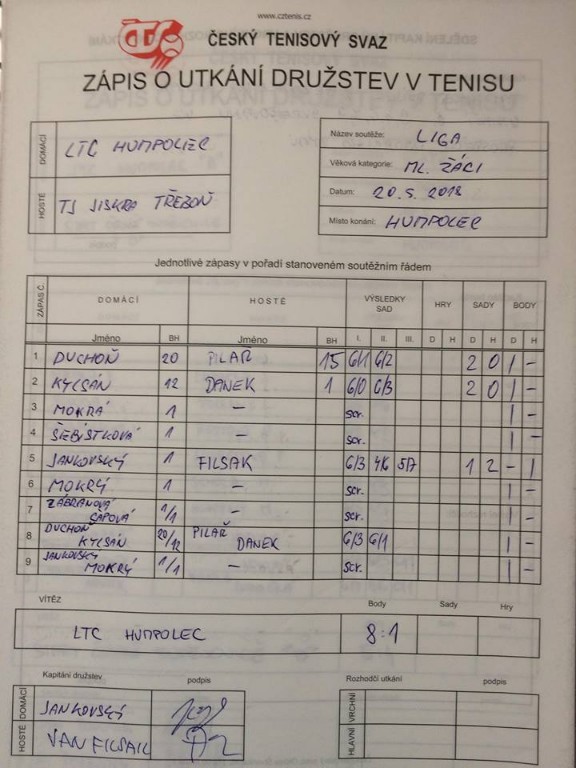 www.cztenis.cz
ČTS ČESKÝ TENISOVÝ SVAZ
ZÁPIS O UTKÁNÍ DRUŽSTEV V TENISU
DOMÁCÍ LTC HUMPOLEC
HOSTÉ TJ JISKRA TŘEBOŇ
Název soutěže: LIGA
Věková kategorie: ML. ŽÁCI
Datum: 20.5.2018
Místo konání: HUMPOLEC
Jednotlivé zápasy v pořadí stanoveném soutěžním řádem
ZÁPAS Č. DOMÁCÍ HOSTÉ VÝSLEDKY SAD HRY SADY BODY
Jméno BH Jméno BH I. II. III. D H D H D H
1 DUCHOŇ 20 PILAŘ 15 6/1 6/2 2 0 1 -
2 KYCSÁN 12 DANEK 1 6/0 6/3 2 0 1 -
3 MOKRÁ 1 - scr. 1 -
4 ŠEBÍSTKOVÁ 1 - scr. 1 -
5 JANKOVSKÝ 1 FILSAK 6/3 4/6 5/7 1 2 - 1
6 MOKRÝ 1 - scr. 1 -
7 ZÁBRANOVÁ SAPOVÁ 1/1 - scr. 1 -
8 DUCHOŇ KYCSÁN 20/12 PILAŘ DANEK 6/3 6/1 1 -
9 JANKOVSKÝ MOKRÝ 1/1 - scr. 1 -
VÍTĚZ Body Sady Hry
LTC HUMPOLEC 8:1
Kapitáni družstev podpis
DOMÁCÍ JANKOVSKÝ
HOSTÉ VAN FILSAK
Rozhodčí utkání podpis
VRCHNÍ
HLAVNÍ